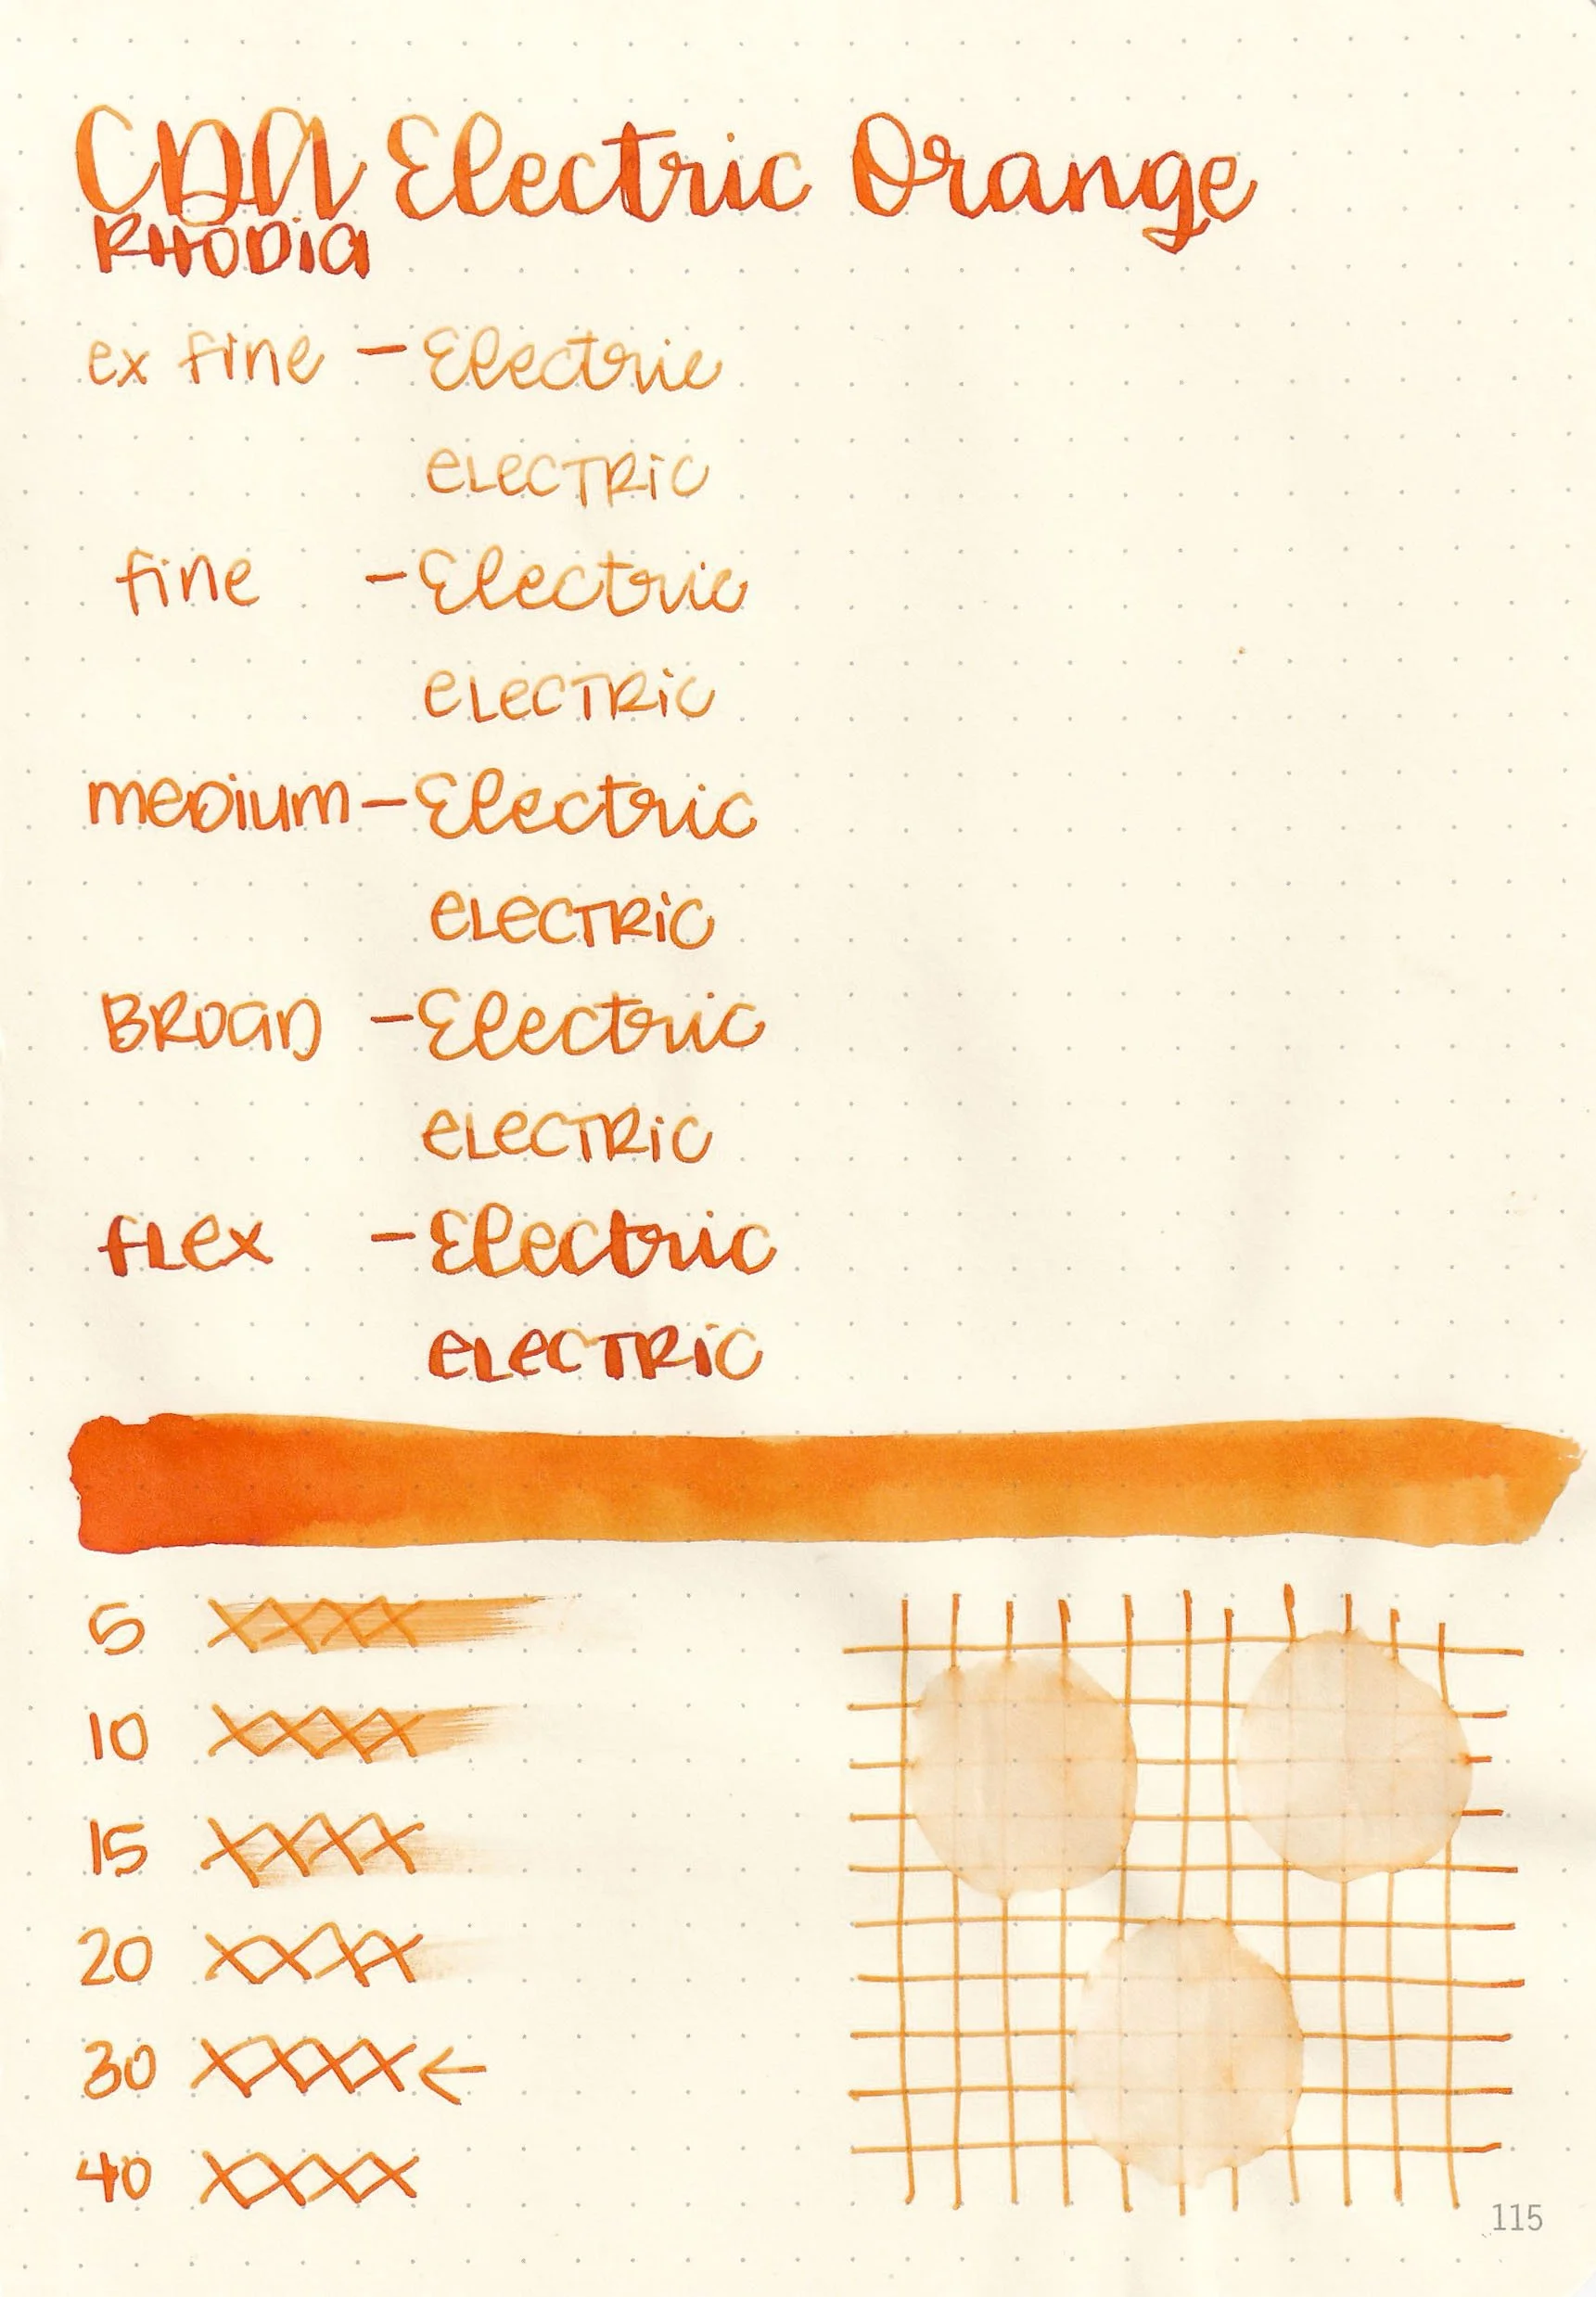 CDA Electric Orange
RHODIA
ex fine - Electric
eLecTRic
fine - Electric
eLecTRic
meDium - Electric
eLecTRic
BROAD - Electric
eLecTRic
fLex - Electric
eLecTRic
5 XXXX
10 XXXX
15 XXXX
20 XXXX
30 XXXX ←
40 XXXX
115